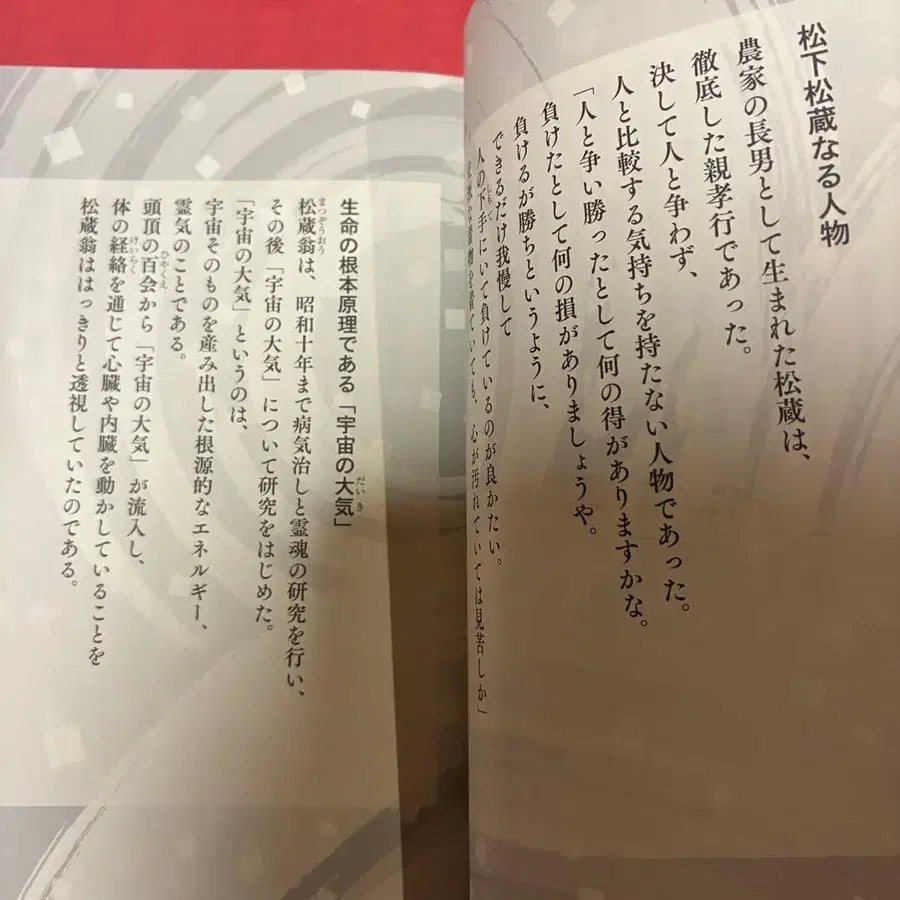 松下松蔵なる人物
農家の長男として生まれた松蔵は、
徹底した親孝行であった。
決して人と争わず、
人と比較する気持ちを持たない人物であった。
「人と争い勝ったとして何の得がありますかな。
負けたとして何の損がありましょうや。
負けるが勝ちというように、
できるだけ我慢して
人の下手にいて負けているのが良かたい。
物を着ていても、心が汚れていては見苦しか」
生命の根本原理である「宇宙の大気」
だいき
松蔵翁は、昭和十年まで病気治しと霊魂の研究を行い、
まつぞうおう
その後「宇宙の大気」について研究をはじめた。
「宇宙の大気」というのは、
宇宙そのものを産み出した根源的なエネルギー、
霊気のことである。
頭頂の百会から「宇宙の大気」が流入し、
ひやくえ
体の経絡を通じて心臓や内臓を動かしていることを
けいらく
松蔵翁ははっきりと透視していたのである。